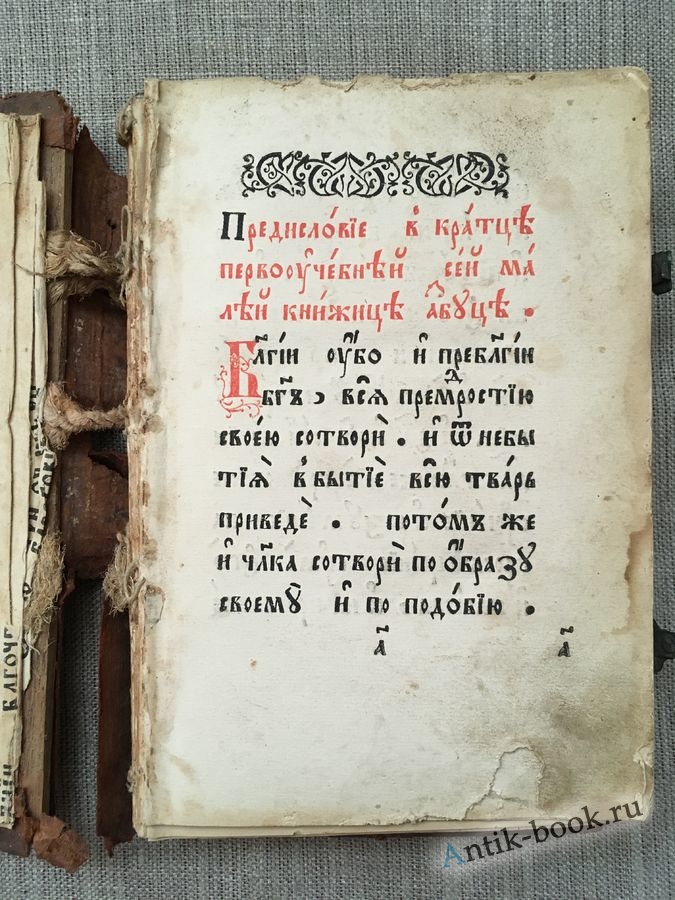 Предисло́вїе в̾ кра́тцѣ
первоꙋче́бнѣй се́й ма́
лѣй кни́жицѣ а҆́ꙁбуцѣ .
Бл҃гі́й ᲂу҆́бо и҆ пребл҃гі́й
бг҃ъ , всѧ̀ премⷣростїю
свое́ю сотворѝ . и҆ ѿ небы
тїѧ̀ в̾ бытїѐ всю̀ тва́рь
приведѐ . пото́мъ же
и҆ чл҃ка сотворѝ по о҆́бразꙋ
своемꙋ̀ и҆ по подо́бїю .
а҃ а҃
Antik-book.ru